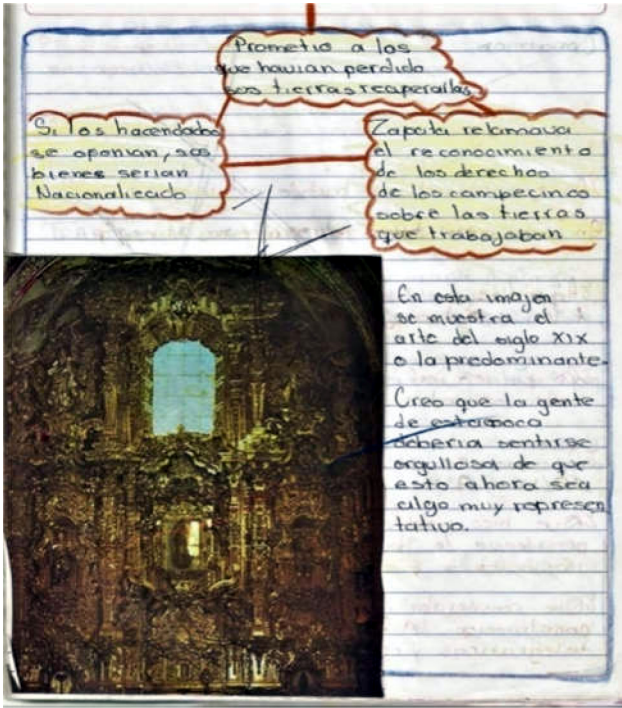 Prometio a los
que havian perdido
sus tierras recuperarllas
Si los hacendados
se oponian, sus
bienes serian
Nacionalicado
Zapata relamava
el reconocimiento
de los derechos
de los campecinos
sobre las tierras
que trabajaban
En esta imajen
se muestra el
arte del siglo XIX
o la predominante.
Creo que la gente
de estamoca
deberia sentirse
orgullosa de que
esto ahora sea
algo muy represen
tativo.